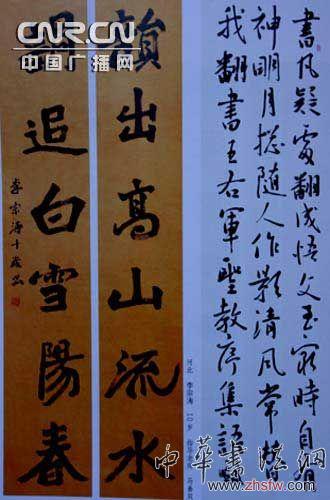 CNR.CN
中国广播网
書凡疑處翻成悟文至窮時自有
神明月總隨人作影清風常惜
我翻書王右軍聖教序集語
韻出高山流水
調追白雪陽春
李宗濤十歲書
河北 李宗涛 10岁
中华书法网
www.zhsfw.com